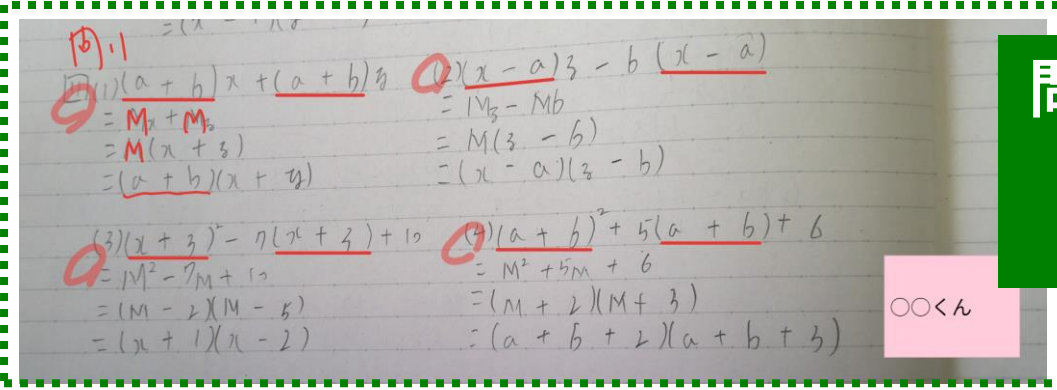 [1](1)(a + b)x + (a + b)y
= Mx + My
= M(x + y)
= (a + b)(x + y)
(2)(x - a)y - b(x - a)
= My - Mb
= M(y - b)
= (x - a)(y - b)
(3)(x + 3)² - 7(x + 3) + 10
= M² - 7M + 10
= (M - 2)(M - 5)
= (x + 1)(x - 2)
(4)(a + b)² + 5(a + b) + 6
= M² + 5M + 6
= (M + 2)(M + 3)
= (a + b + 2)(a + b + 3)
○○くん